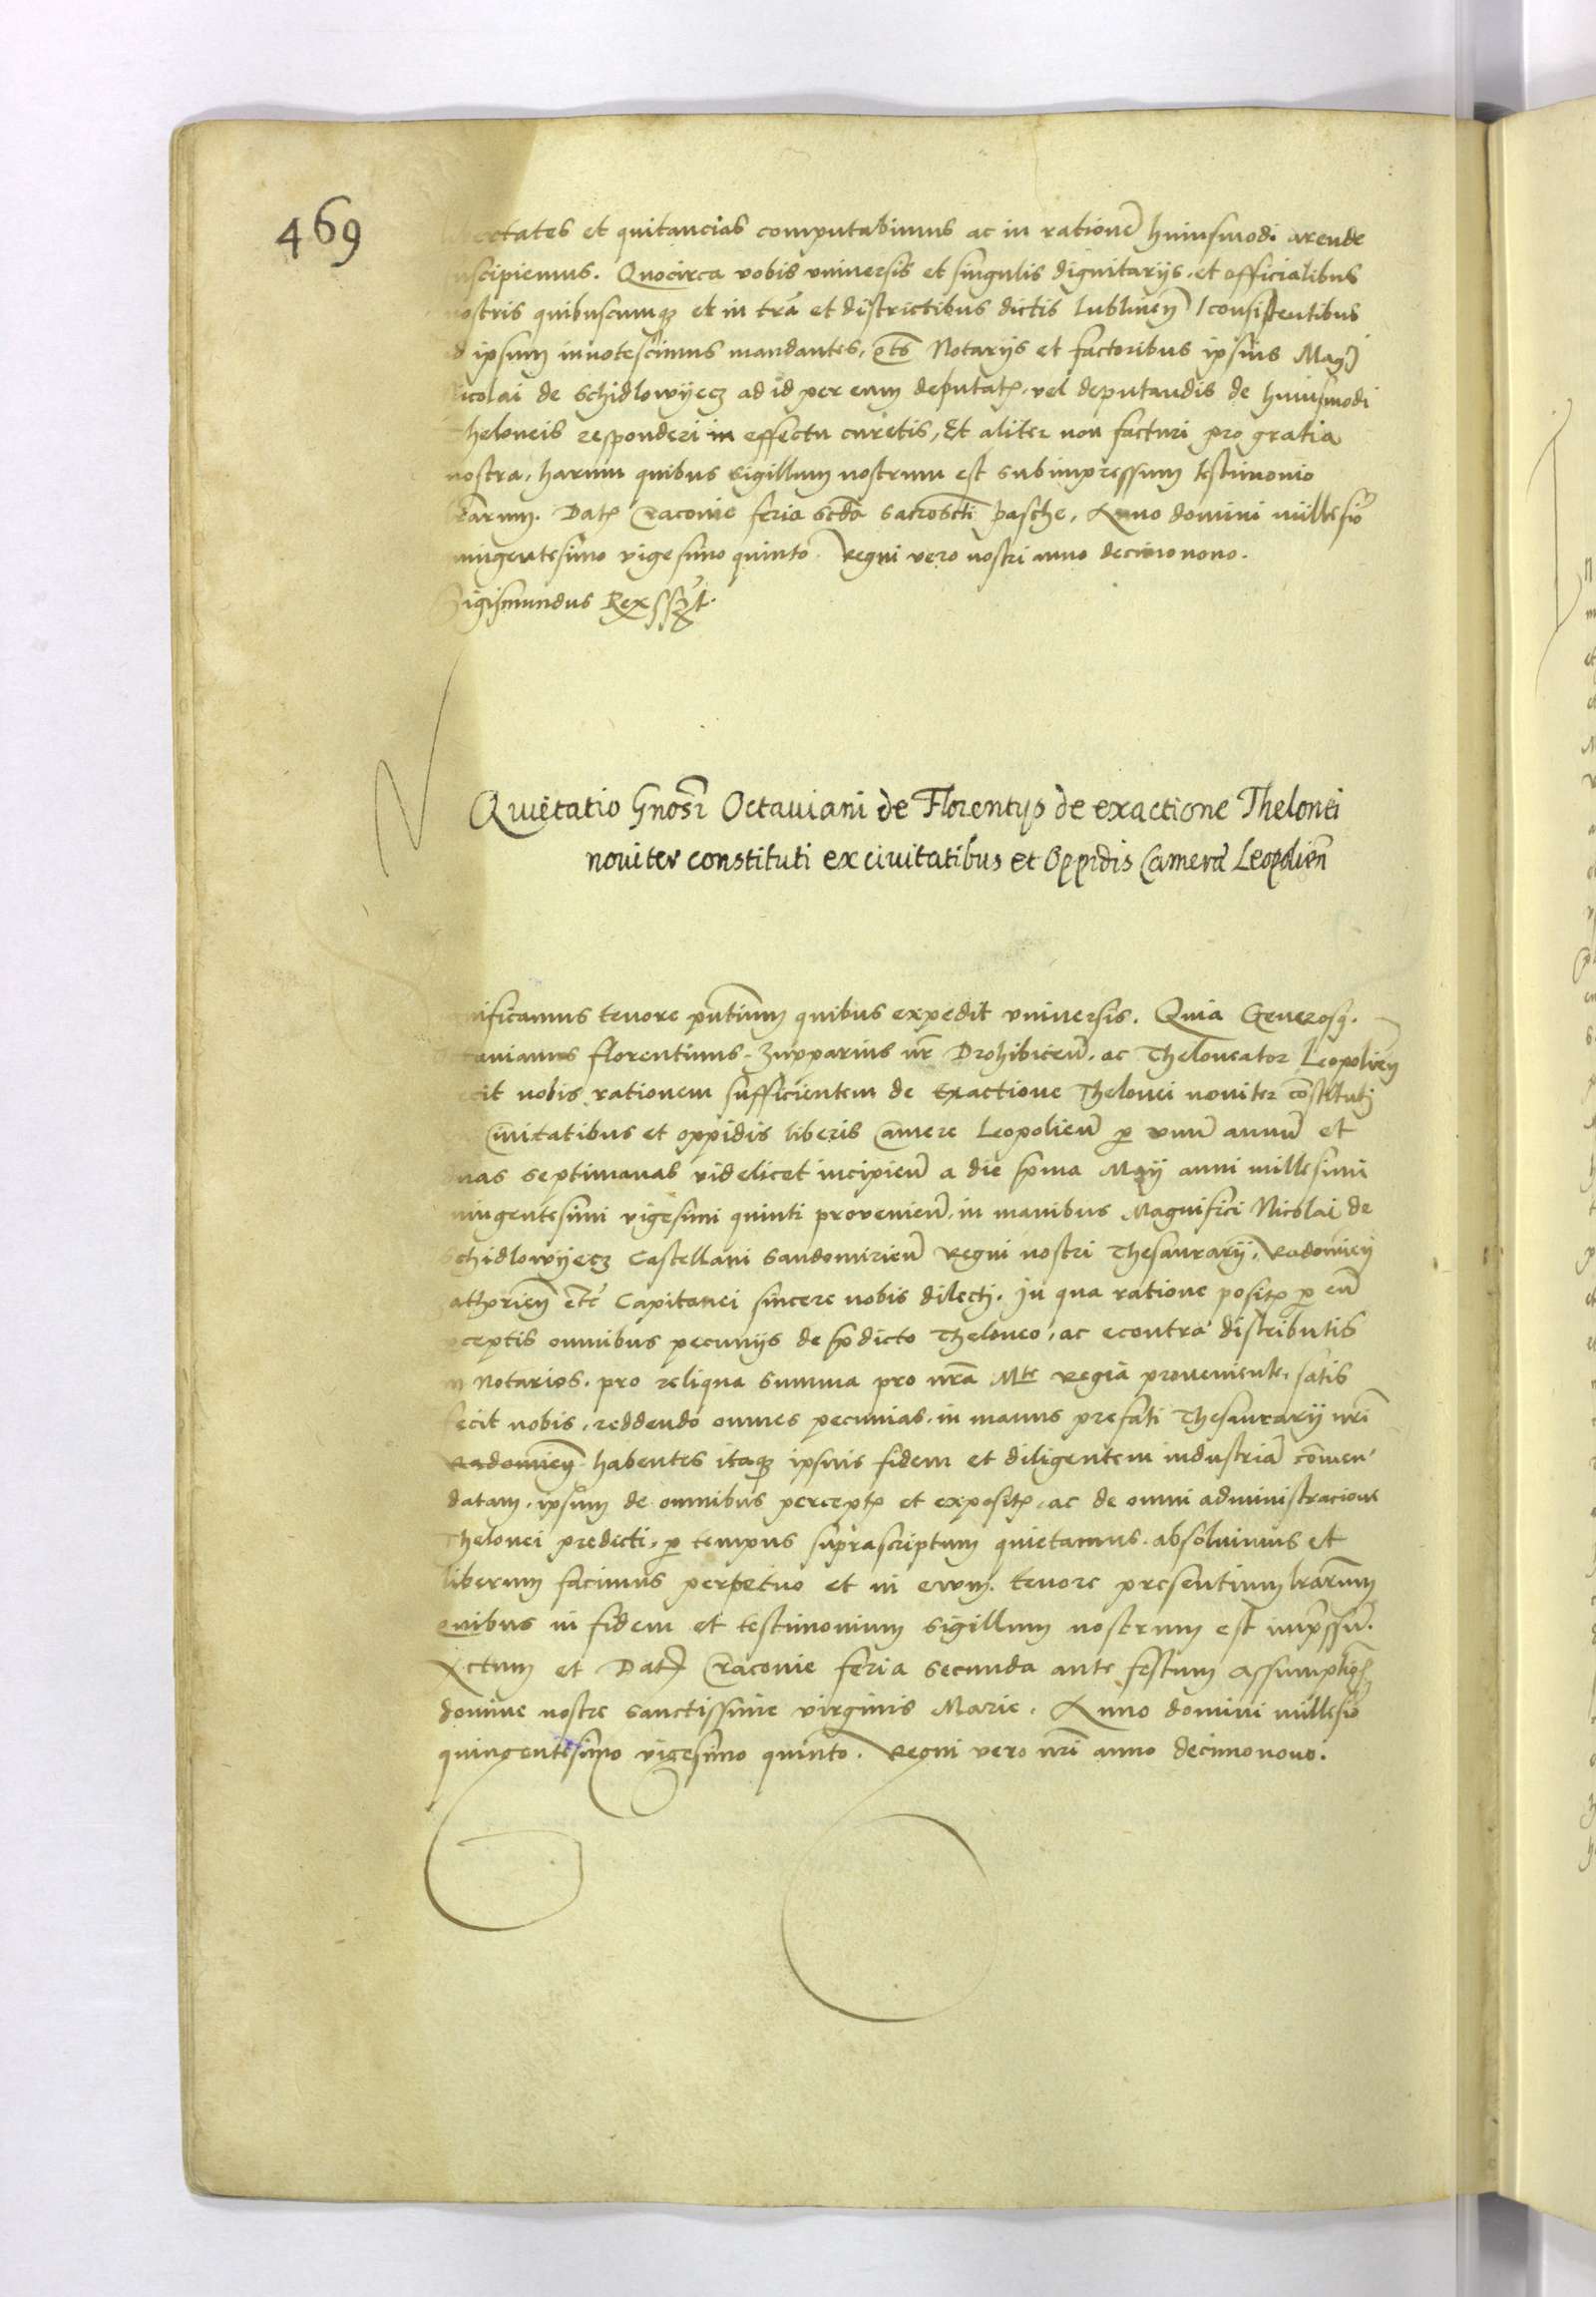 469
libertates et quitancias computabimus ac in ratione huiusmodi arende
uscipiemus. Quocirca vobis vniuersis et singulis dignitarijs et officialibus
nostris quibuscumque et in tra et districtibus dictis Lublinen consistentibus
id ipsum innotescimus mandantes, Notarijs et factoribus ipsius Magci
Nicolai de Schidlowyecz ad id per eum deputatis vel deputandis de huiusmodi
Theloneis responderi in effectu curetis, Et aliter non facturi pro gratia
nostra, harum quibus sigillum nostrum est subimpressum testimonio
lrarum. Dat Cracovie feria scda sacroscti pasche, Anno domini millesio
uingentesimo vigesimo quinto. Regni vero nostri anno decimonono.
Sigismundus Rex sszt.
Quietatio Gnosi Octauiani de Florentys de exactione Thelonei
nouiter constituti ex ciuitatibus et Oppidis Camera Leopolien
nificamus tenore pntium quibus expedit vniuersis. Quia Generosq.
Octauianus florentinus zupparius nr Drohibicen. ac Theloneator Leopolien
ecit nobis rationem sufficientem de Exactione Thelonei nouiter constituti
Ciuitatibus et oppidis liberis Camere Leopolien p vnu annu et
duas septimanas videlicet incipien a die prima Maij anni millesimi
uingentesimi vigesimi quinti provenien. in manibus Magnifici Nicolai de
Schidlowyecz Castellani Sandomirien Regni nostri Thesaurarij. Radomien
etc Capitanei sincere nobis dilecti. In qua ratione posit p eu
rceptis omnibus pecunijs de pdicto Theloneo, ac econtra distributis
in Notarios. pro reliqua summa pro nra Mte regia proueniente, satis
fecit nobis, reddendo omnes pecunias, in manus prefati Thesaurarij nri
Radomien habentes itaque ipsius fidem et diligentem industria comen
datam, ipsum de omnibus percept et exposit. ac de omni administracione
Thelonei predicti, p tempus suprascriptum quietamus. absoluimus et
liberum facimus perpetuo et in evum. tenore presentium lrarum
quibus in fidem et testimonium sigillum nostrum est impssu.
Actum et Dat Cracovie feria secunda ante festum Assumptionis
domine nostre sanctissime virginis Marie. Anno domini millesio
quingentesimo vigesimo quinto. Regni vero nri anno decimonono.